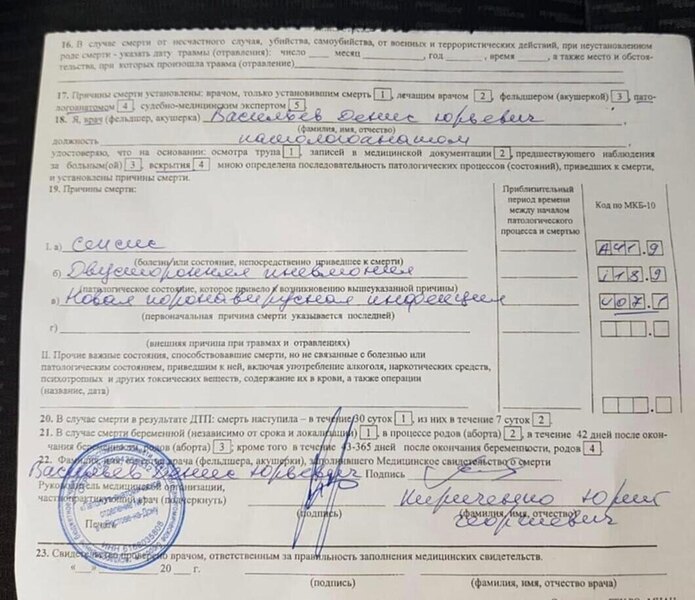 16. В случае смерти от несчастного случая, убийства, самоубийства, от военных и террористических действий, при неустановленном
роде смерти - указать дату травмы (отравления): число ___ месяц ___, год ___, время ___, а также место и обстоя-
тельства, при которых произошла травма (отравление)
17. Причины смерти установлены: врачом, только установившим смерть 1, лечащим врачом 2, фельдшером (акушеркой) 3, пато-
логоанатомом 4, судебно-медицинским экспертом 5
18. Я, врач (фельдшер, акушерка) Васильев Денис Юрьевич
(фамилия, имя, отчество)
должность патологоанатом
удостоверяю, что на основании: осмотра трупа 1, записей в медицинской документации 2, предшествующего наблюдения
за больным(ой) 3, вскрытия 4 мною определена последовательность патологических процессов (состояний), приведших к смерти,
и установлены причины смерти.
19. Причины смерти:
Приблизительный
период времени
между началом
патологического
процесса и смертью
Код по МКБ-10
I. а) Сепсис A41.9
(болезнь или состояние, непосредственно приведшее к смерти)
б) Двусторонняя пневмония J18.9
(патологическое состояние, которое привело к возникновению вышеуказанной причины)
в) Новая коронавирусная инфекция U07.1
(первоначальная причина смерти указывается последней)
г)
(внешняя причина при травмах и отравлениях)
II. Прочие важные состояния, способствовавшие смерти, но не связанные с болезнью или
патологическим состоянием, приведшим к ней, включая употребление алкоголя, наркотических средств,
психотропных и других токсических веществ, содержание их в крови, а также операции
(название, дата)
20. В случае смерти в результате ДТП: смерть наступила – в течение 30 суток 1, из них в течение 7 суток 2.
21. В случае смерти беременной (независимо от срока и локализации) 1, в процессе родов (аборта) 2, в течение 42 дней после окон-
чания беременности, родов (аборта) 3; кроме того в течение 43-365 дней после окончания беременности, родов 4
22. Фамилия, имя, отчество врача (фельдшера, акушерки), заполнившего Медицинское свидетельство о смерти
Васильев Денис Юрьевич Подпись
Руководитель медицинской организации,
частнопрактикующий врач (подчеркнуть) Кириченко Юрий
(подпись) (фамилия, имя, отчество)
Георгиевич
Печать
23. Свидетельство проверено врачом, ответственным за правильность заполнения медицинских свидетельств.
«___» ___ 20 ___ г.
(подпись) (фамилия, имя, отчество врача)